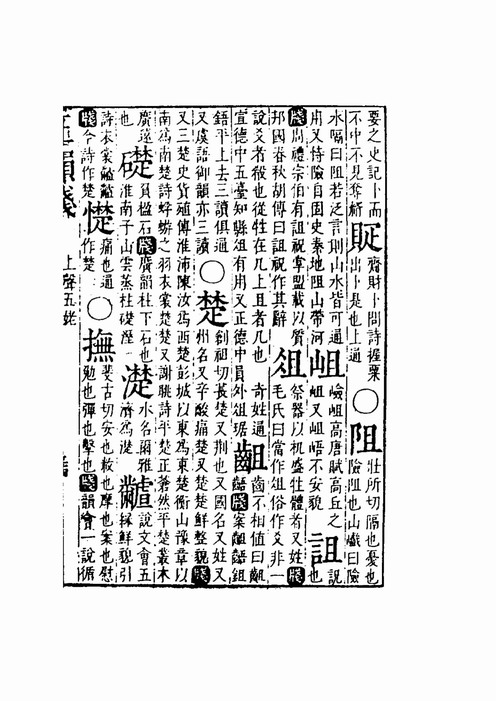 要之史記卜而
不中不見奪
齎財卜問詩握粟
出卜是也上通
○阻
壯所切隔也憂也
險阻也山巇曰險
水隔曰阻若乏言則山水皆可通
用又恃險自固史秦地阻山帶河
岨
嶮岨高唐賦高丘之
岨又岨峿不安貌
詛
說
也
牋周禮宗伯有詛祝掌盟載以質
邦國春秋胡傳曰詛祝作其辭
俎
祭器以机盛牲體者又姓牋
毛氏曰當作俎俗作爻非一
說爻者殽也從牲在几上且者几也 奇姓通
宣德中五臺知縣俎有用又正德中員外俎琚
齟
齒不相值曰齟
齬牋案齟齬鉏
鋙平上去三讀俱通
又虞語御韻亦三讀
○楚
創祖切長楚又荆也又國名又姓又
州名又辛酸痛楚又楚楚鮮整貌牋
又三楚史貨殖傳淮沛陳汝爲西楚彭城以東爲東楚衡山豫章以
南爲南楚詩蜉蝣之羽衣裳楚楚又謝朓詩平楚正蒼然平楚叢木
廣遠
也
礎
質楹石牋廣韻柱下石也
淮南子山雲蒸柱礎溼一
濋
水名爾雅
濟爲濋
說文會五
綵鮮貌引
詩衣裳
牋今詩作楚
憷
痛也通
一作楚
○撫
斐古切安也敉也摩也案也慰
勉也彈也擊也牋韻會一說循
上聲五姥